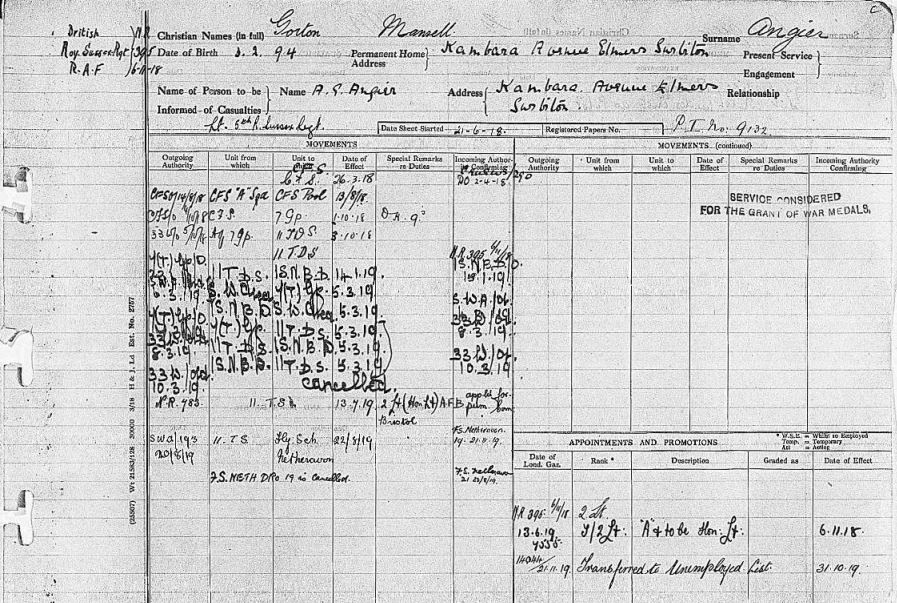 British
Roy. Sussex Rgt
R.A.F
N.R
395
6-11-18
Christian Names (in full) Gorton Mansell Surname Angier
Date of Birth 2. 94 Permanent Home Address Kambara Avenue Elmers Surbiton Present Service
Engagement
Name of Person to be Informed of Casualties Name A. G. Angier Address Kambara. Avenue Elmers Surbiton Relationship
Lt. 5th R. Sussex Regt. Date Sheet Started 21-6-18. Registered Papers No. P.I. No: 9132
MOVEMENTS
MOVEMENTS (continued)
Outgoing Authority Unit from which Unit to which Date of Effect Special Remarks re Duties Incoming Authority Confirming Outgoing Authority Unit from which Unit to which Date of Effect Special Remarks re Duties Incoming Authority Confirming
C.F.S. 26.3.18 DO 2-4-18.
CFS "A" Sqd CFS Pool 13/8/18.
C.F.S. 7 Gp. 1.10.18
7 Gp. 11 TDS 3.10.18
11 TDS N.R 395 6/11/18
SERVICE CONSIDERED
FOR THE GRANT OF WAR MEDALS.
11 T.D.S. 1S.N.B.D. 14.1.19.
6.3.19. 5.3.19.
1S.N.B.D. 5.3.19.
11 T.D.S. 5.3.19. 8.3.19.
8.3.19. 11 T.D.S. 1S.N.B.D. 5.3.19.
1S.N.B.D. 11 T.D.S. 5.3.19. 10.3.19
10.3.19. cancelled.
N.R. 783. 11. T.S. 13.7.19. 2 Lt (Hon Lt) A.F.B. Bristol
SWA/193 20/8/19 11. T.S Fly. Sch. Netheravon 22/8/19 F.S. Netheravon 19. 21.11.19.
F.S. NETH DRO 19 is cancelled.
(25807) Wt 21583/128 30000 3/18 H & J, Ld Est. No. 2757
APPOINTMENTS AND PROMOTIONS
* W.S.E. = Whilst so Employed
Temp. = Temporary
Act = Acting
Date of Lond. Gaz. Rank * Description Graded as Date of Effect
N.R 395 6/11/18 2. Lt.
13.6.19 7535. T/2 Lt. "A" & to be Hon. Lt. 6.11.18.
21.11.19. Transferred to Unemployed List. 31.10.19.